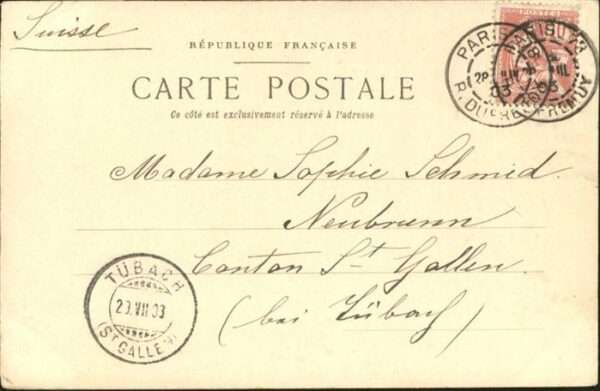 Suisse
RÉPUBLIQUE FRANÇAISE
CARTE POSTALE
Ce côté est exclusivement réservé à l'adresse
POSTES
PARIS
R. DU
03
Madame Sophie Schmid.
Neubrunn
Canton St Gallen.
(bei Tübach)
TÜBACH
29.VII 03
(ST GALLEN)